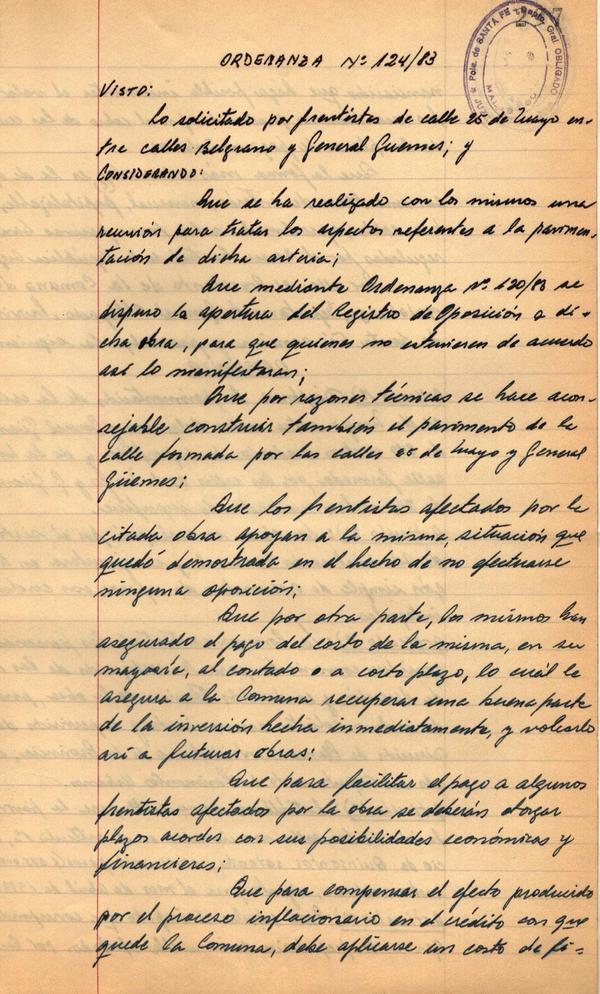 227
Pcia. de SANTA FE - Dpto. Gral OBLIGADO
ORDENANZA Nº 124/83
VISTO:
Lo solicitado por frentistas de calle 25 de Mayo en-
tre calles Belgrano y General Guemes; y
CONSIDERANDO:
Que se ha realizado con los mismos una
reunión para tratar los aspectos referentes a la pavimen-
tación de dicha arteria;
Que mediante Ordenanza Nº 120/83 se
dispuso la apertura del Registro de Oposición a di-
cha obra, para que quienes no estuvieren de acuerdo
así lo manifestaran;
Que por razones técnicas se hace acon-
sejable construir también el pavimento de la
calle formada por las calles 25 de Mayo y General
Güemes;
Que los frentistas afectados por la
citada obra apoyan a la misma, situación que
quedó demostrada en el hecho de no efectuarse
ninguna oposición;
Que por otra parte, los mismos han
asegurado el pago del costo de la misma, en su
mayoría, al contado o a corto plazo, lo cuál le
asegura a la Comuna recuperar una buena parte
de la inversión hecha inmediatamente, y volcarlo
así a futuras obras;
Que para facilitar el pago a algunos
frentistas afectados por la obra se deberán otorgar
plazos acordes con sus posibilidades económicas y
financieras;
Que para compensar el efecto producido
por el proceso inflacionario en el crédito con que
quede la Comuna, debe aplicarse un costo de fi-